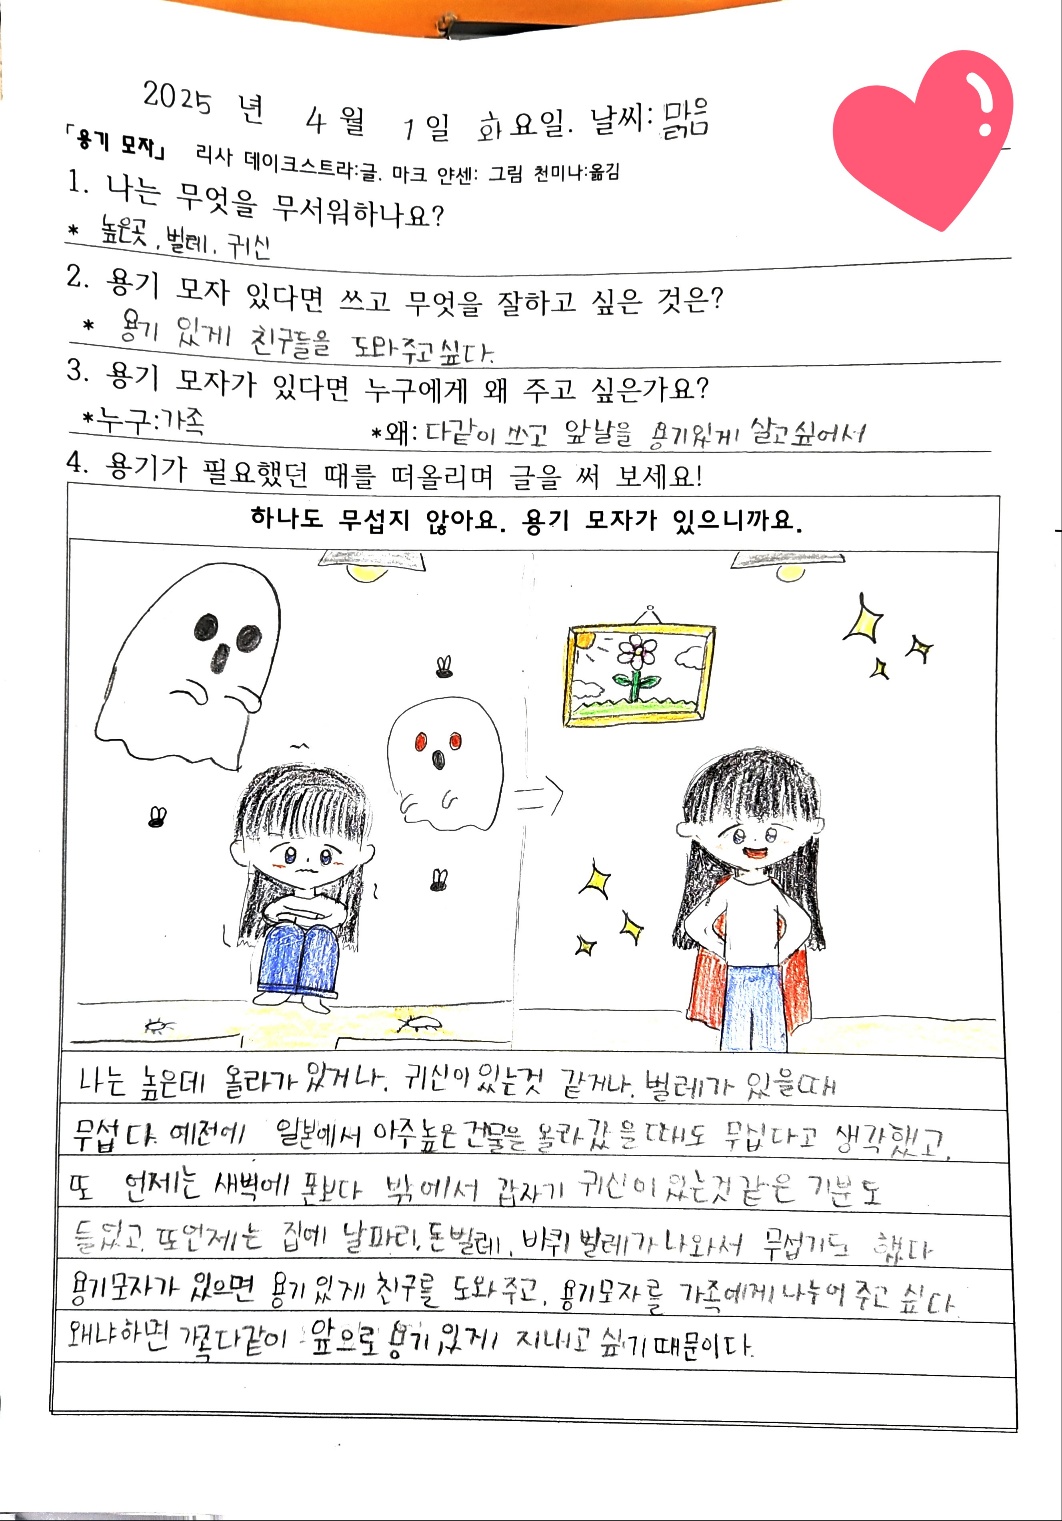 2025 년 4 월 1 일 화 요일. 날씨: 맑음
「용기 모자」 리사 데이크스트라:글. 마크 얀센: 그림 천미나:옮김
1. 나는 무엇을 무서워하나요?
* 높은곳, 벌레, 귀신
2. 용기 모자 있다면 쓰고 무엇을 잘하고 싶은 것은?
* 용기 있게 친구들을 도와주고싶다.
3. 용기 모자가 있다면 누구에게 왜 주고 싶은가요?
*누구:가족 *왜: 다같이 쓰고 앞날을 용기있게 살고싶어서
4. 용기가 필요했던 때를 떠올리며 글을 써 보세요!
하나도 무섭지 않아요. 용기 모자가 있으니까요.
나는 높은데 올라가 있거나. 귀신이 있는것 같거나. 벌레가 있을때
무섭다. 예전에 일본에서 아주높은건물을 올라갔을때도 무섭다고 생각했고,
또 언제는 새벽에 문보다 밖에서 갑자기 귀신이 있는것같은 기분도
들었고. 또언제는 집에 날파리, 돈벌레, 바퀴벌레가 나와서 무섭기도 했다
용기모자가 있으면 용기있게 친구를 도와주고, 용기모자를 가족에게나누어 주고 싶다.
왜냐하면 가족다같이 앞으로 용기있게 지내고 싶기때문이다.